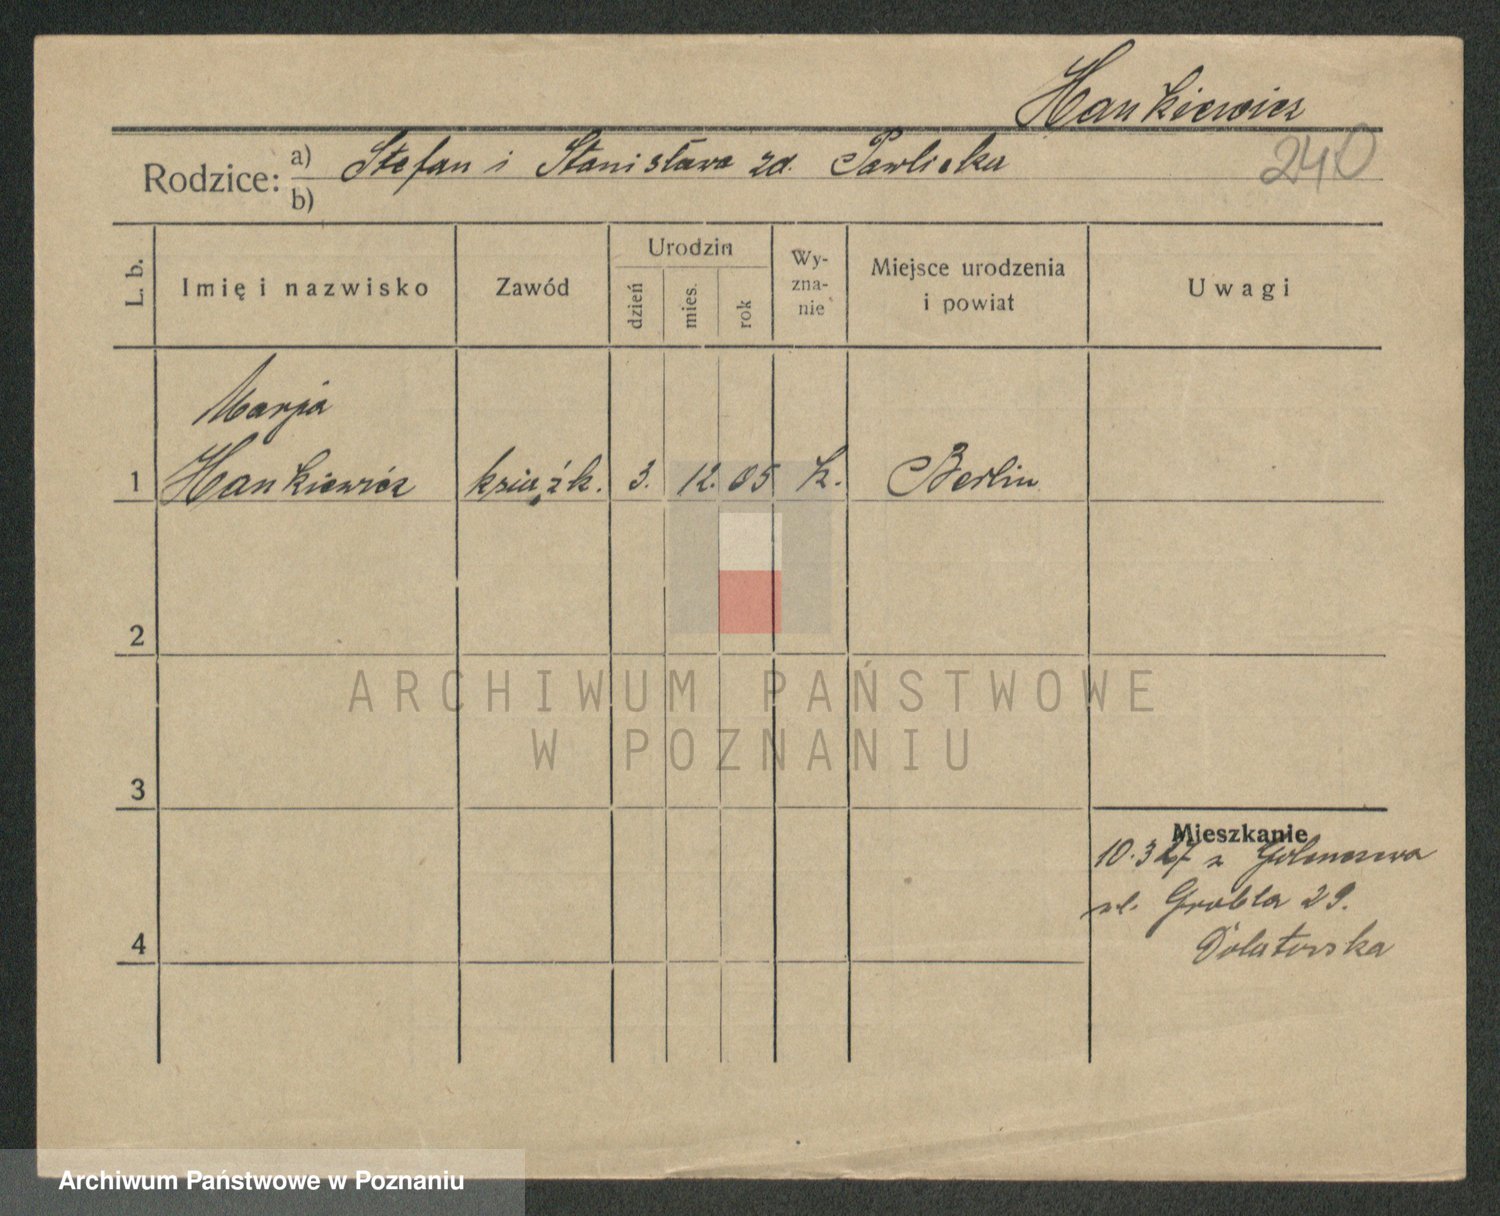 Hankiewicz
Rodzice: a) Stefan i Stanisława zd. Pawlicka
b)
240
L. b.
Imię i nazwisko
Zawód
Urodzin
dzień
mies.
rok
Wy-
zna-
nie
Miejsce urodzenia
i powiat
Uwagi
Marja
1 Hankiewicz książk. 3. 12. 05 k. Berlin
2
ARCHIWUM PAŃSTWOWE
W POZNANIU
3
Mieszkanie
10.3 27 z
ul. Grobla 29.
4
Archiwum Państwowe w Poznaniu